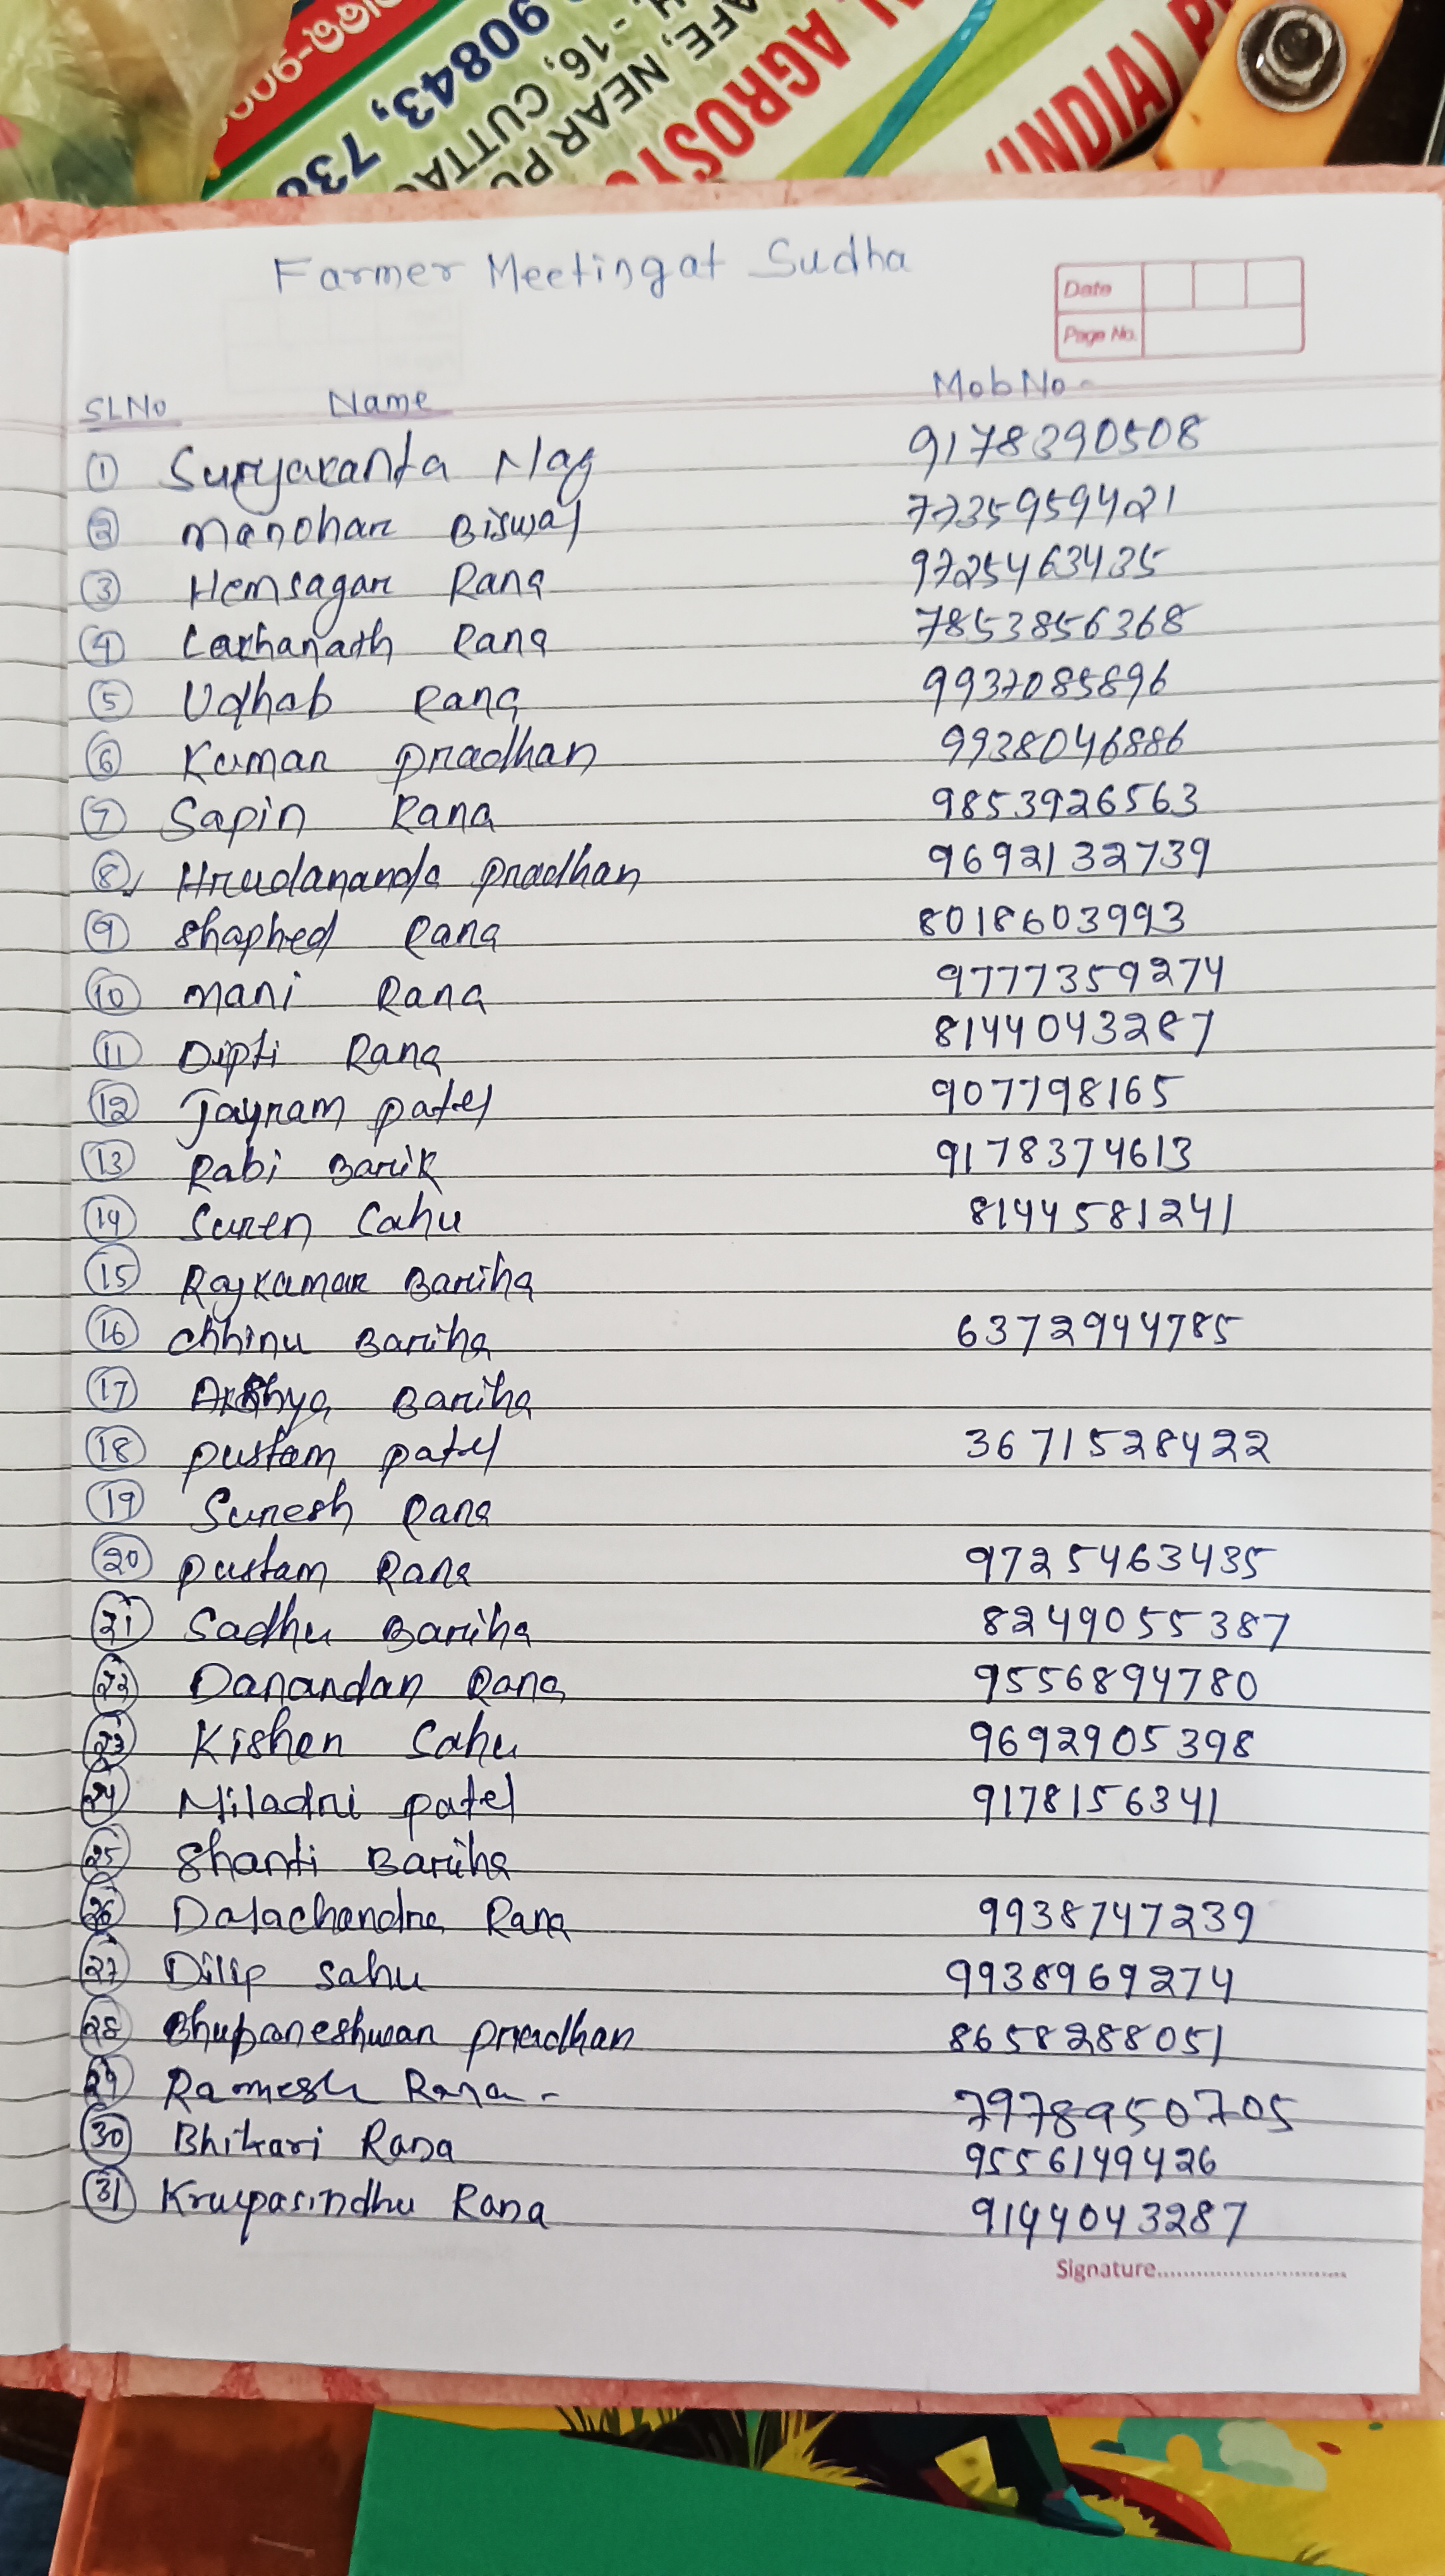 90843, 738
- 16, CUTTA
AFE, NEAR PU
L AGROSY
(INDIA) P
Farmer Meeting at Sudha
Date
Page No.
SLNo Name Mob No -
1 Suryakanta Nag 9178390508
2 Manohar Biswal 7735959421
3 Hemsagar Rana 9725463435
4 Lakhanath Rana 7853856368
5 Udhab Rana 9937085896
6 Kumar pradhan 9938046886
7 Sapin Rana 9853926563
8 Hrudananda pradhan 9692132739
9 Shaphed Rana 8018603993
10 Mani Rana 9777359274
11 Dipti Rana 8144043287
12 Jayram patel 907798165
13 Rabi Barik 9178374613
14 Suren Sahu 8144581241
15 Rajkumar Bariha
16 Chhinu Bariha 6372944785
17 Akshya Bariha
18 pustam patel 3671528422
19 Suresh Rana
20 pustam Rana 9725463435
21 Sadhu Bariha 8249055387
22 Danandan Rana 9556894780
23 Kishen Sahu 9692905398
24 Niladri patel 9178156341
25 Shanti Bariha
26 Dalachandra Rana 9938747239
27 Dilip sahu 9938969274
28 Bhubaneshwar pradhan 8658288051
29 Ramesh Rana - 7978950705
30 Bhikari Rana 9556149426
31 Krupasindhu Rana 9144043287
Signature